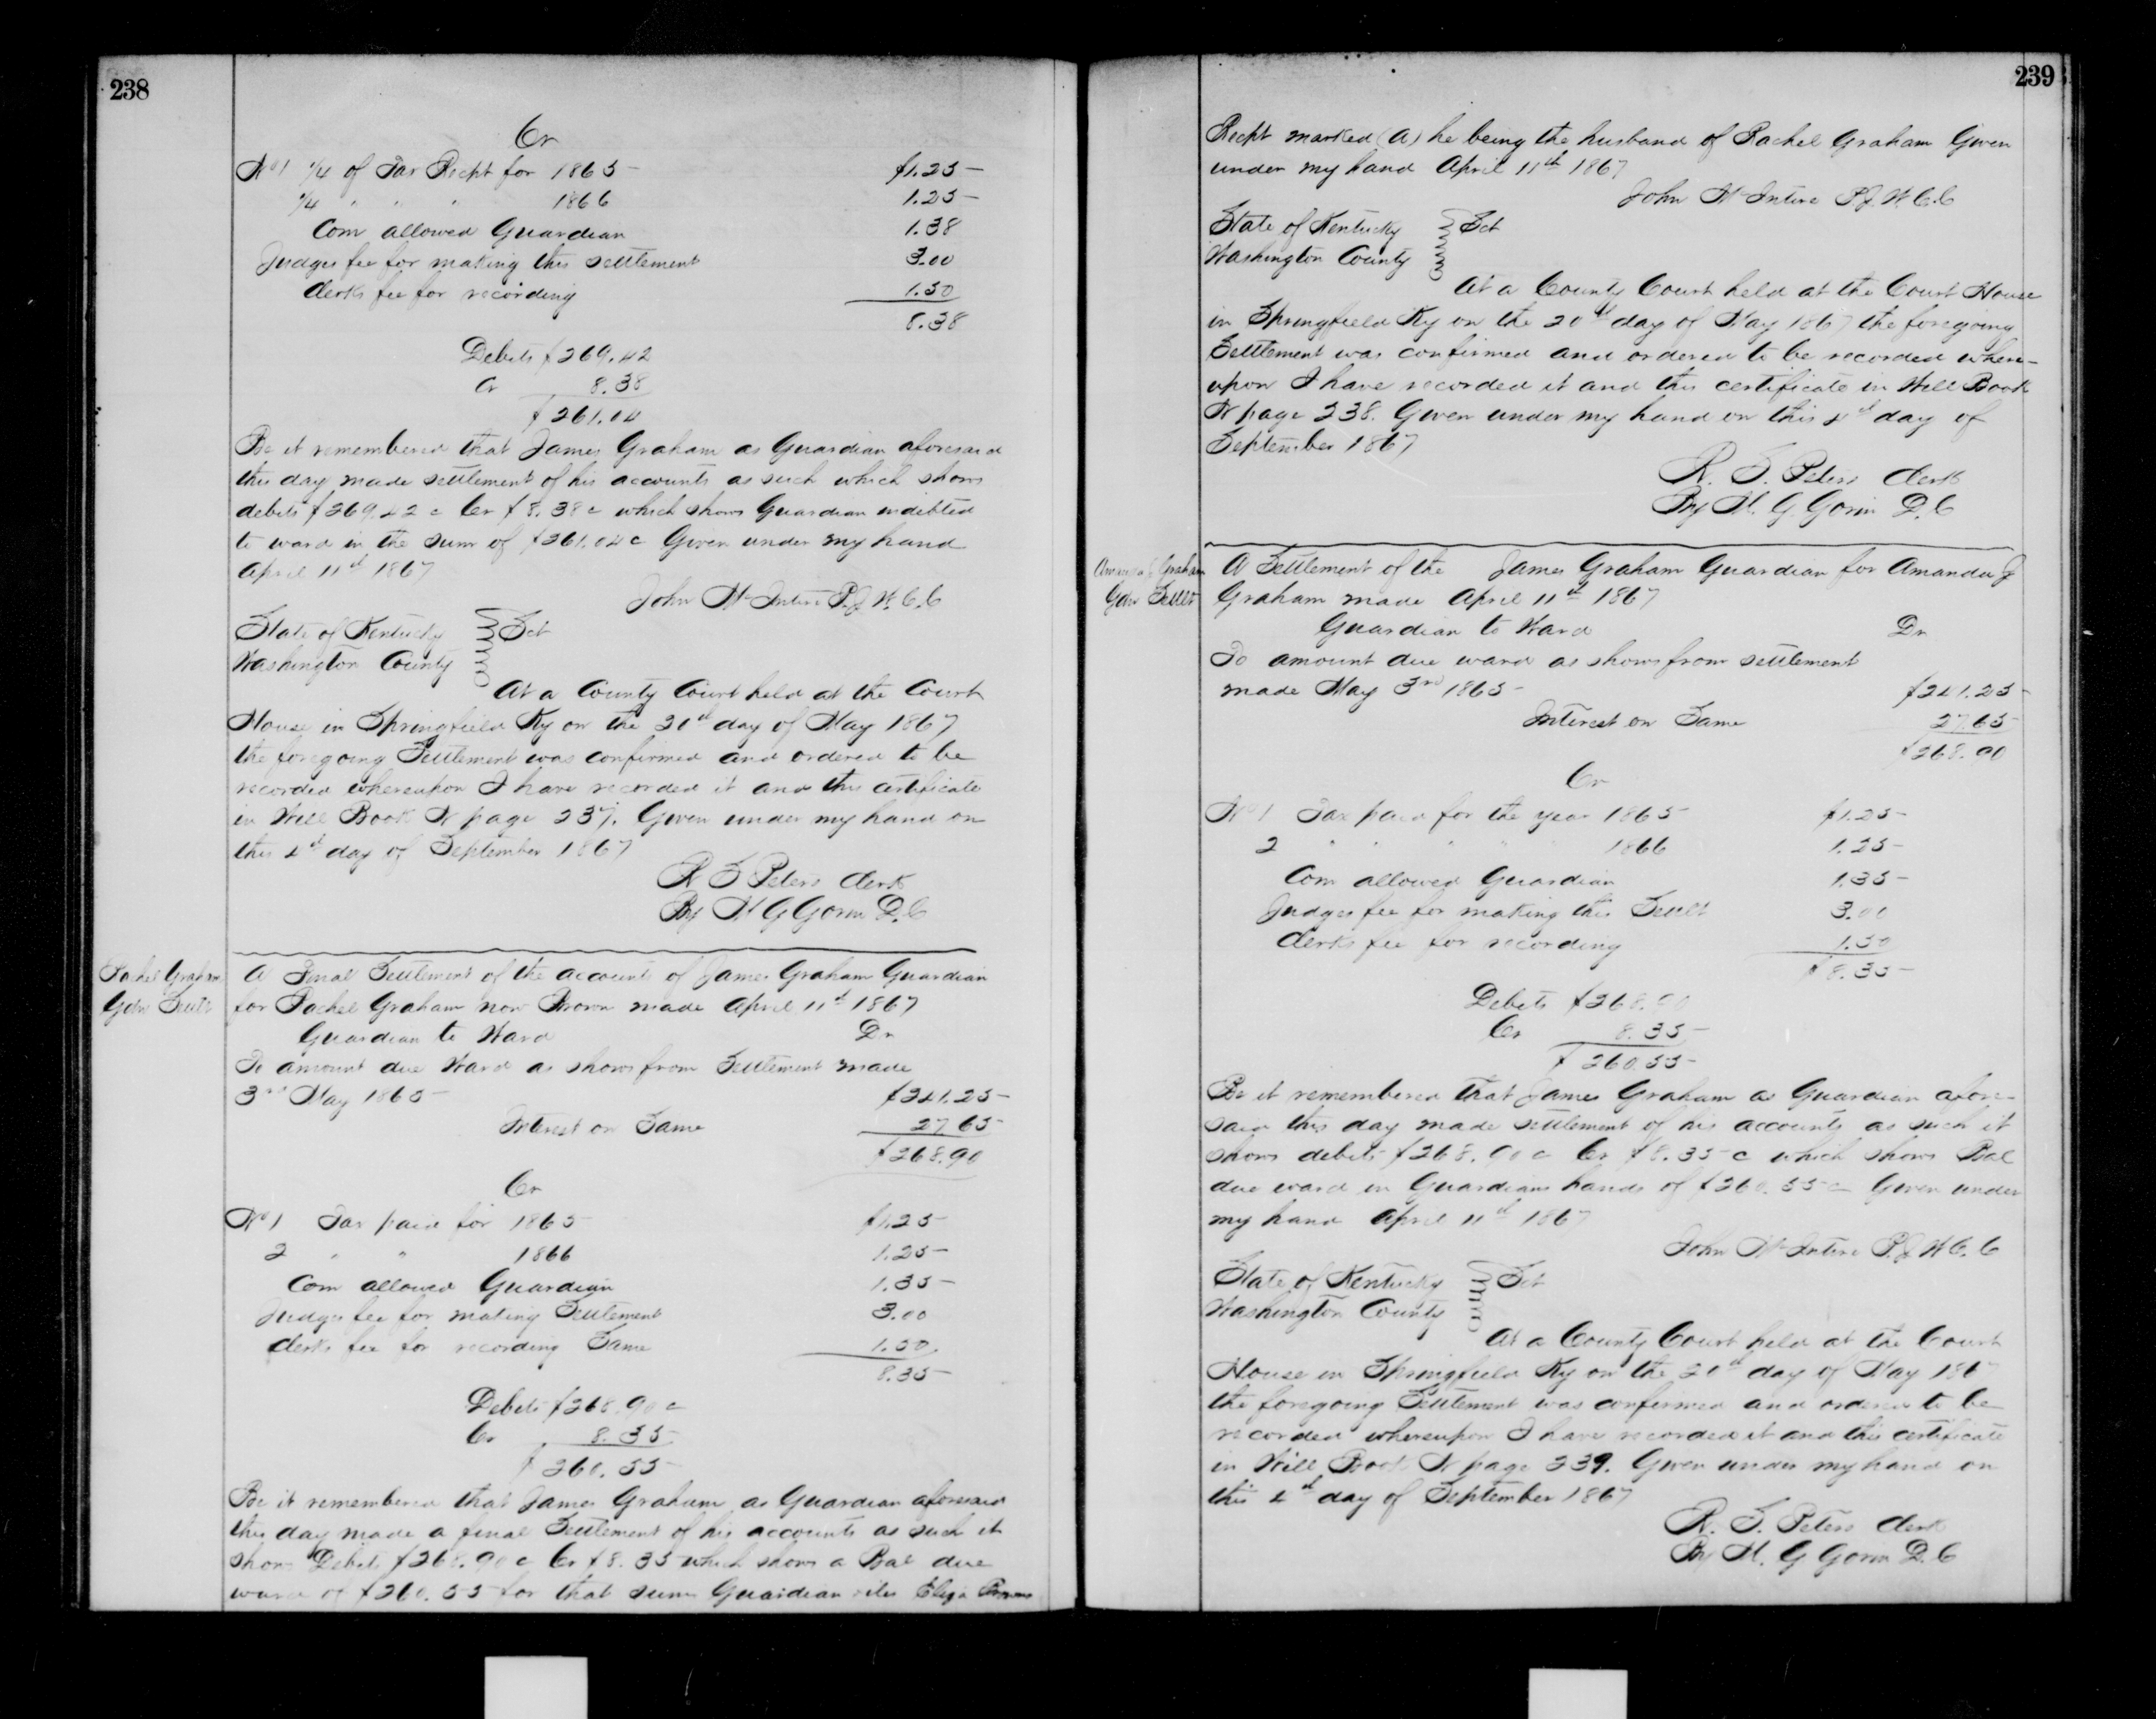 238
Cr
No 1 1/4 of Tax Recpt for 1865 $1.25
1/4 " " " 1866 1.25
Com allowed Guardian 1.38
Judges fee for making this settlement 3.00
Clerks fee for recording 1.50
8.38
Debits $269.42
Cr 8.38
$261.04
Be it remembered that James Graham as Guardian aforesaid
this day made settlement of his accounts as such which shows
debits $269.42 c Cr $8.38 c which shows Guardian indebted
to ward in the sum of $261.04 c Given under my hand
April 11th 1867
John McIntire P.J.W.C.C
State of Kentucky Sct
Washington County
At a County Court held at the Court
House in Springfield Ky on the 20th day of May 1867
the foregoing Settlement was confirmed and ordered to be
recorded whereupon I have recorded it and this certificate
in Will Book N page 237. Given under my hand on
this 4th day of September 1867
R S Peters Clerk
By M G Gorin D.C
Rachel Graham
Gdn Settlt
A Final Settlement of the accounts of James Graham Guardian
for Rachel Graham now Brown made April 11th 1867
Guardian to Ward Dr
To amount due Ward as shows from Settlement made
3rd May 1865 $241.25
Interest on Same 27.65
$268.90
Cr
No 1 Tax paid for 1865 $1.25
2 " " 1866 1.25
Com allowed Guardian 1.35
Judges fee for making Settlement 3.00
Clerks fee for recording Same 1.50
8.35
Debits $268.90 c
Cr 8.35
$260.55
Be it remembered that James Graham as Guardian aforesaid
this day made a final Settlement of his accounts as such it
shows Debits $268.90 c Cr $8.35 which shows a Bal due
ward of $260.55 for that sum Guardian files Eliga Browns
239
Recpt marked (A) he being the husband of Rachel Graham Given
under my hand April 11th 1867
John McIntire P.J.W.C.C
State of Kentucky Sct
Washington County
At a County Court held at the Court House
in Springfield Ky on the 20th day of May 1867 the foregoing
Settlement was confirmed and ordered to be recorded where-
upon I have recorded it and this certificate in Will Book
N page 238. Given under my hand on this 4th day of
September 1867
R. S. Peters Clerk
By M. G. Gorin D.C
Amanda J Graham
Gdn Settlt
A Settlement of the James Graham Guardian for Amanda J
Graham made April 11th 1867
Guardian to Ward Dr
To amount due ward as shows from settlement
made May 3rd 1865 $241.25
Interest on Same 27.65
$268.90
Cr
No 1 Tax paid for the year 1865 $1.25
2 " " " " 1866 1.25
Com allowed Guardian 1.35
Judges fee for making this Settlt 3.00
Clerks fee for recording 1.50
$8.35
Debits $268.90
Cr 8.35
$260.55
Be it remembered that James Graham as Guardian afore-
said this day made settlement of his accounts as such it
shows debits $268.90 c Cr $8.35 c which shows Bal
due ward in Guardians hands of $260.55 c Given under
my hand April 11th 1867
John McIntire P.J.W.C.C
State of Kentucky Sct
Washington County
At a County Court held at the Court
House in Springfield Ky on the 20th day of May 186
the foregoing Settlement was confirmed and ordered to be
recorded whereupon I have recorded it and this certificate
in Will Book N page 239. Given under my hand on
this 4th day of September 1867
R. S. Peters Clerk
By M. G Gorin D.C